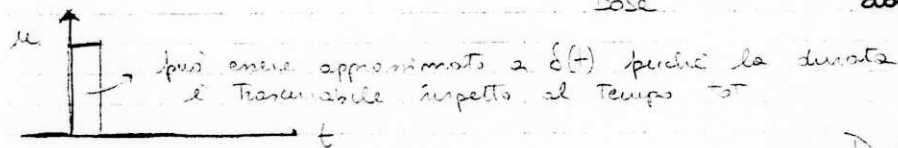 Dose
u
può essere approssimato a δ(t) perché la durata
è trascurabile rispetto al tempo tot
t